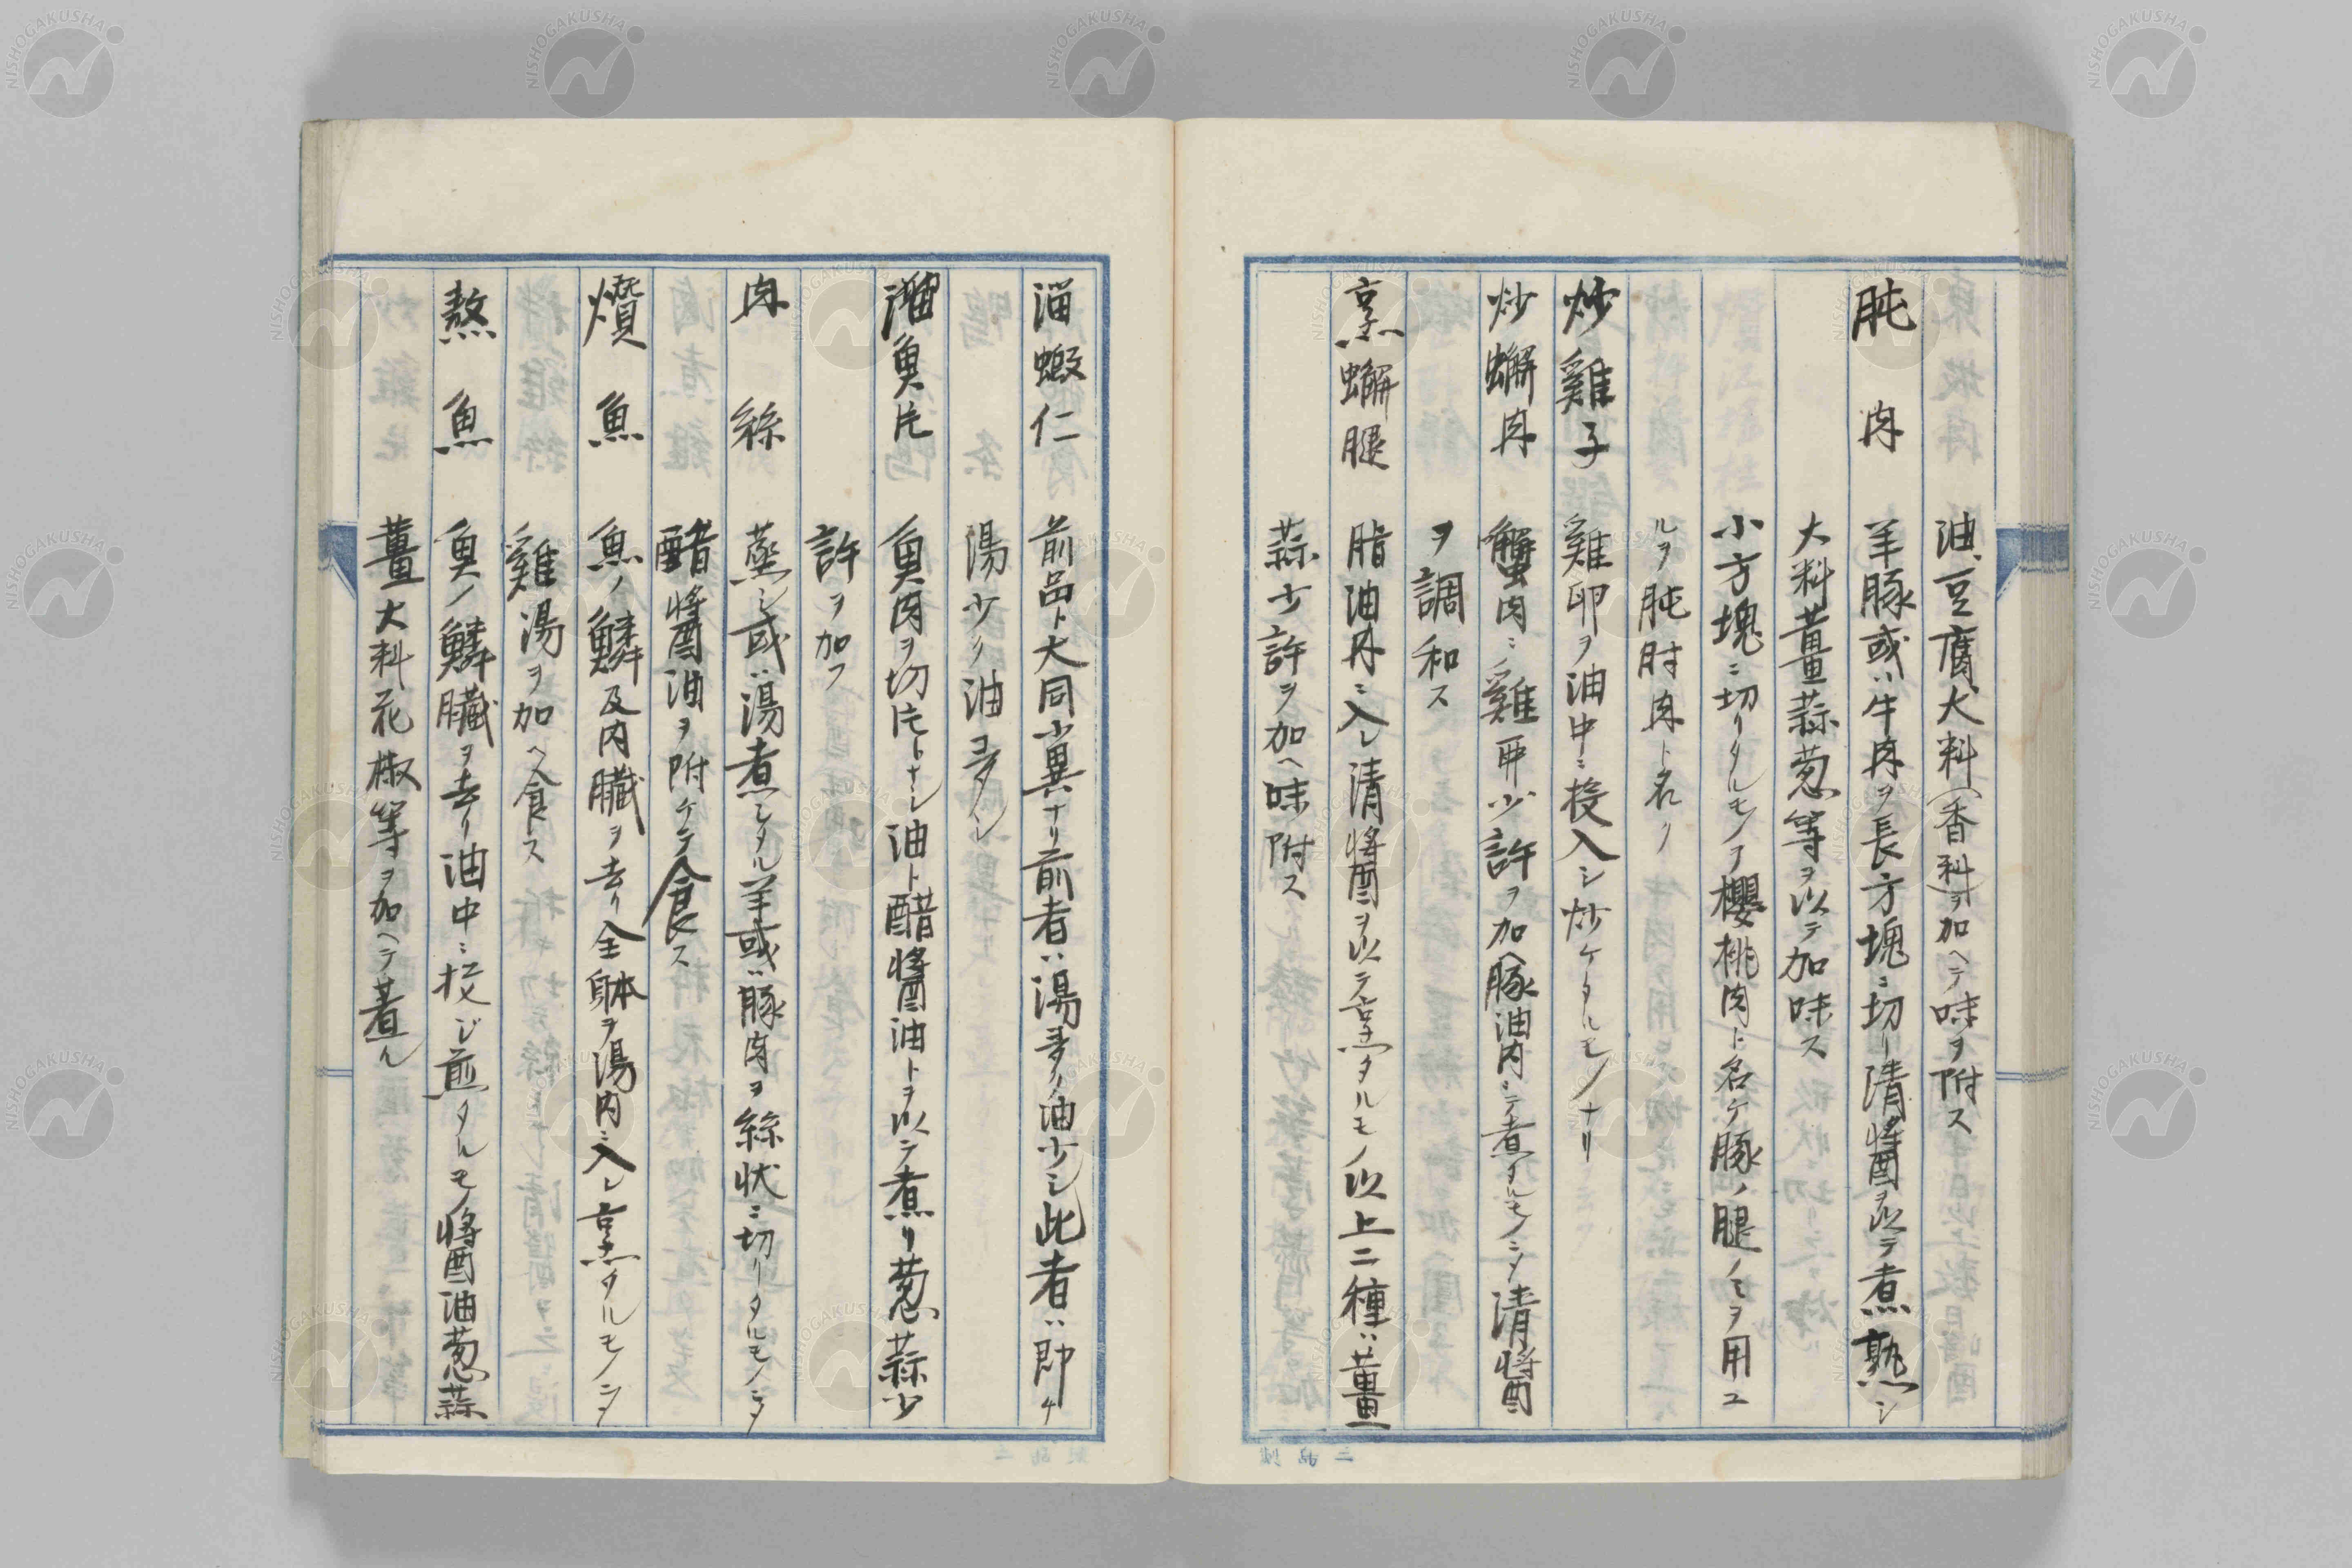 油、豆腐、大料(香料)ヲ加ヘテ味ヲ附ス
肫肉 羊豚或ハ牛肉ヲ長方塊ニ切リ清醬ヲ以テ煮熟シ
大料薑蒜葱等ヲ以テ加味ス
小方塊ニ切リタルモノヲ櫻桃肉ト名ケ豚ノ腿ノミヲ用ユ
ルヲ肫肘肉ト名ク
炒雞子 雞卵ヲ油中ニ投入シ炒ケタルモノナリ
炒蠏肉 蟹肉ニ雞卵少許ヲ加ヘ豚油内ニテ煮タルモノニシテ清醬
ヲ調和ス
烹蠏腿 脂油丹ニ入レ清醬ヲ以テ烹タルモノ以上二種ハ薑
蒜少許ヲ加ヘ味附ス
溜蝦仁 前品ト大同小異ナリ前者ハ湯多ク油少シ此者ハ即チ
湯少ク油多シ
溜魚片 魚肉ヲ切片トナシ油ト醋醬油トヲ以テ煮リ葱蒜少
許ヲ加フ
肉絲 蒸シ或ハ湯煮シタル羊或ハ豚肉ヲ絲状ニ切リタルモノニシテ
醋醬油ヲ附ケテ食ス
熮魚 魚ノ鱗及内臓ヲ去リ全躰ヲ湯内ニ入レ烹タルモノニシテ
雞湯ヲ加ヘ食ス
熬魚 魚ノ鱗臓ヲ去リ油中ニ投ジ煎タルモノ醬油葱蒜
薑大料花椒等ヲ加ヘテ煮ル
NISHOGAKUSHA